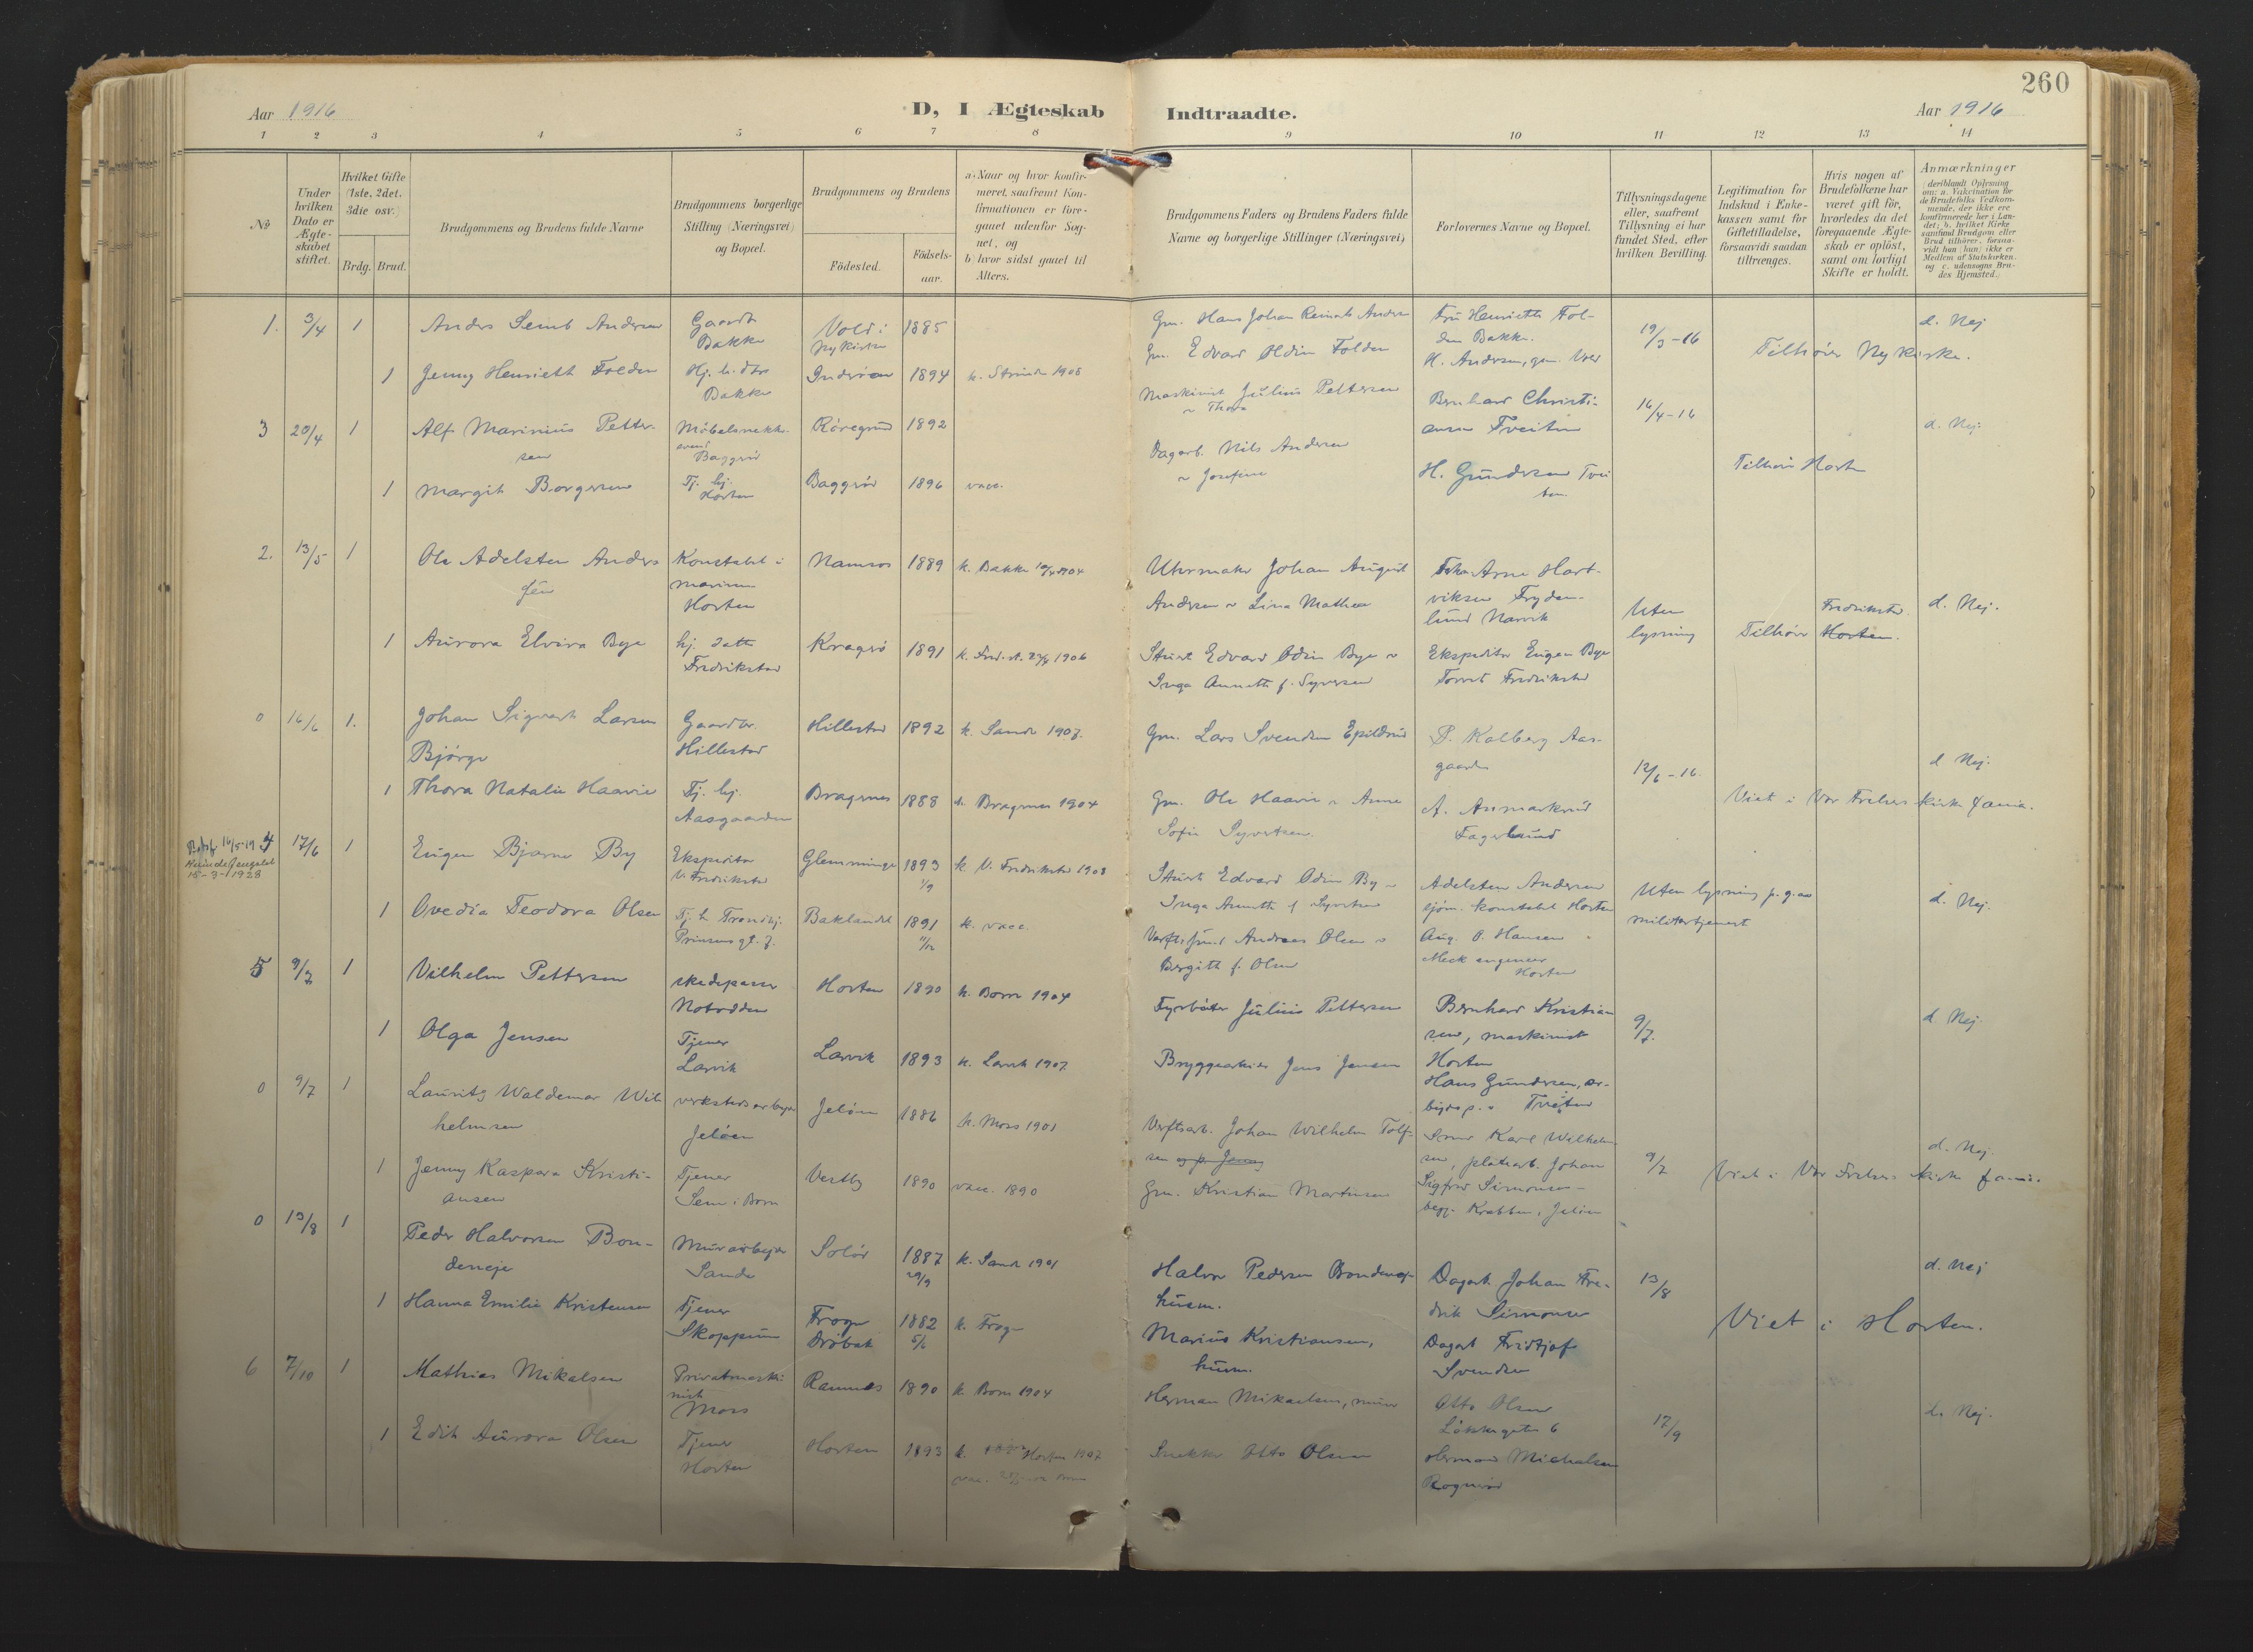 260
Aar 1916
D, I Ægteskab Indtraadte.
Aar 1916
1 2 3 4 5 6 7 8 9 10 11 12 13 14
No
Under hvilken Dato er Ægteskabet stiftet.
Hvilket Gifte (1ste, 2det, 3die osv.)
Brdg. Brud.
Brudgommens og Brudens fulde Navne
Brudgommens borgerlige Stilling (Næringsvei) og Bopæl.
Brudgommens og Brudens
Födested.
Födsels-aar.
a) Naar og hvor konfirmeret, saafremt Konfirmationen er foregaaet udenfor Sognet, og
b) hvor sidst gaaet til Alters.
Brudgommens Faders og Brudens Faders fulde Navne og borgerlige Stillinger (Næringsvei)
Forlovernes Navne og Bopæl.
Tillysningsdagene eller, saafremt Tillysning ei har fundet Sted, efter hvilken Bevilling.
Legitimation for Indskud i Enkekassen samt for Giftetilladelse, forsaavidt saadan tiltrænges.
Hvis nogen af Brudefolkene har været gift för, hvorledes da det foregaaende Ægteskab er oplöst, samt om lovligt Skifte er holdt.
Anmærkninger
1. 3/4 1 Anders Semb Andersen Gaardbr Bakke Vold i Nykirke 1885
Gm. Hans Johan Reinalt Andersen
Fru Henriette Folden Bakke.
19/3-16
d. Nej
1 Jenny Henriette Folden Hj. h. dtr Bakke Inderöen 1894 k. Strinde 1908
Gm. Edvard Oldin Folden
H. Andersen, gm. Vold
Tilhörer Nykirke.
3 20/4 1 Alf Marinius Pettersen Möbelsnekkersvend Baggeröd Röregrud 1892
Maskinist Julius Pettersen
~ Thora
Bernhard Christiansen Tveiten
16/4-16
d. Nej.
1 Margit Borgersen Tj. hj. Horten Baggeröd 1896 vacc.
Dagarb. Nils Andersen
~ Josefine
H. Gundersen Tveiten
Tilhörer Horten
2. 13/5 1 Ole Adelsten Andersen Konstabel i marinen Horten Namsos 1889 k. Bakke 10/4 1904
Uhrmaker Johan August Andersen ~ Lina Mathea
Arne Hartviksen Frydenlund Narvik
Uten lysning
d. Nej.
1 Aurora Elvira Bye hj. datter Fredrikstad Kragerö 1891 k. Fred.st. 1906
Stuert Edvard Odin Bye ~
Inga Annette f. Syversen
Ekspeditör Eugen Bye
Torvet Fredrikstad
Tilhörer Horten. Fredrikstad.
0 16/6 1. Johan Sigvart Larsen Bjørge Gaardbr. Hillestad Hillestad 1892 k. Sande 1907.
Gm. Lars Svendsen
P. Kalberg Aasgaarden
12/6-16.
d Nej.
1 Thora Natalie Haavie Tj. hj. Aasgaarden Bragernes 1888 k. Bragernes 1904
Gm. Ole Haavie ~ Anne Sofie Syvertsen.
A. Anmarkrud Fagerlund
Viet i Vor Frelsers kirke
4 17/6 1 Eugen Bjarne By Ekspeditör V. Fredrikstad Glemminge 1893 1/9 k V. Fredrikstad 1908
15-3-1928
Stuert Edvard Odin By ~
Inga Annette f Syvertsen
Adelsten Andersen
sjöm. konstabel Horten
Uten lysning p. g. av militærtjeneste
d. Nej.
1 Ovedia Teodora Olsen Tj. h. Trondhj. Prinsens gt. 7. Baklandet 1891 11/12 k. vacc.
Andreas Olsen ~
Bergith f. Olsen
Aug. O. Hansen
Horten
5 9/7 1 Vilhelm Pettersen Notodden Horten 1890 k. Borre 1904
Fyrböter Julius Pettersen
Bernhard Kristiansen, maskinist Horten
9/7.
d Nej.
1 Olga Jensen Tjener Larvik Larvik 1893 k. Larvik 1907.
Bryggearbeider Jens Jensen
Hans Gundersen, Tveiten
0 9/7 1 Lauritz Waldemar Wilhelmsen verkstedsarbeider Jelöen Jelöen 1886 k. Moss 1901
Verftsarb. Johan Wilhelm Tolfsen og p. Jenny
Karl Wilhelmsen, platearb. Johan
9/7
d. Nej.
1 Jenny Kaspara Kristiansen Tjener Sem i Borre Vestby 1890 vacc. 1890
Gm. Kristian Martinsen
Sigfred Simonsen
Krabben, Jelöen
Viet i Vor Frelsers kirke
0 13/8 1 Peder Halvorsen Bondeneje Murarbejder Sande Solör 1887 29/9 k. Sande 1901
Halvor Pedersen Bondeneje husm.
Dagarb. Johan Fredrik Simonsen
13/8
d. Nej
1 Hanna Emilie Kristensen Tjener Skoppum Frogn Dröbak 1882 5/6 k. Frogn
Marius Kristiansen, husm.
Dagarb Fridtjof Svendsen
Viet i Horten.
6 7/10 1 Mathias Mikalsen Privatmaskinist Moss Ramnes 1890 k Borre 1904
Herman Mikaelsen, murer
Otto Olsen Lökkegaten 6
17/9
d. Nej.
1 Edit Aurora Olsen Tjener Horten Horten 1893 k. Horten 1907
Snekker Otto Olsen
Herman Michalsen Rognerød